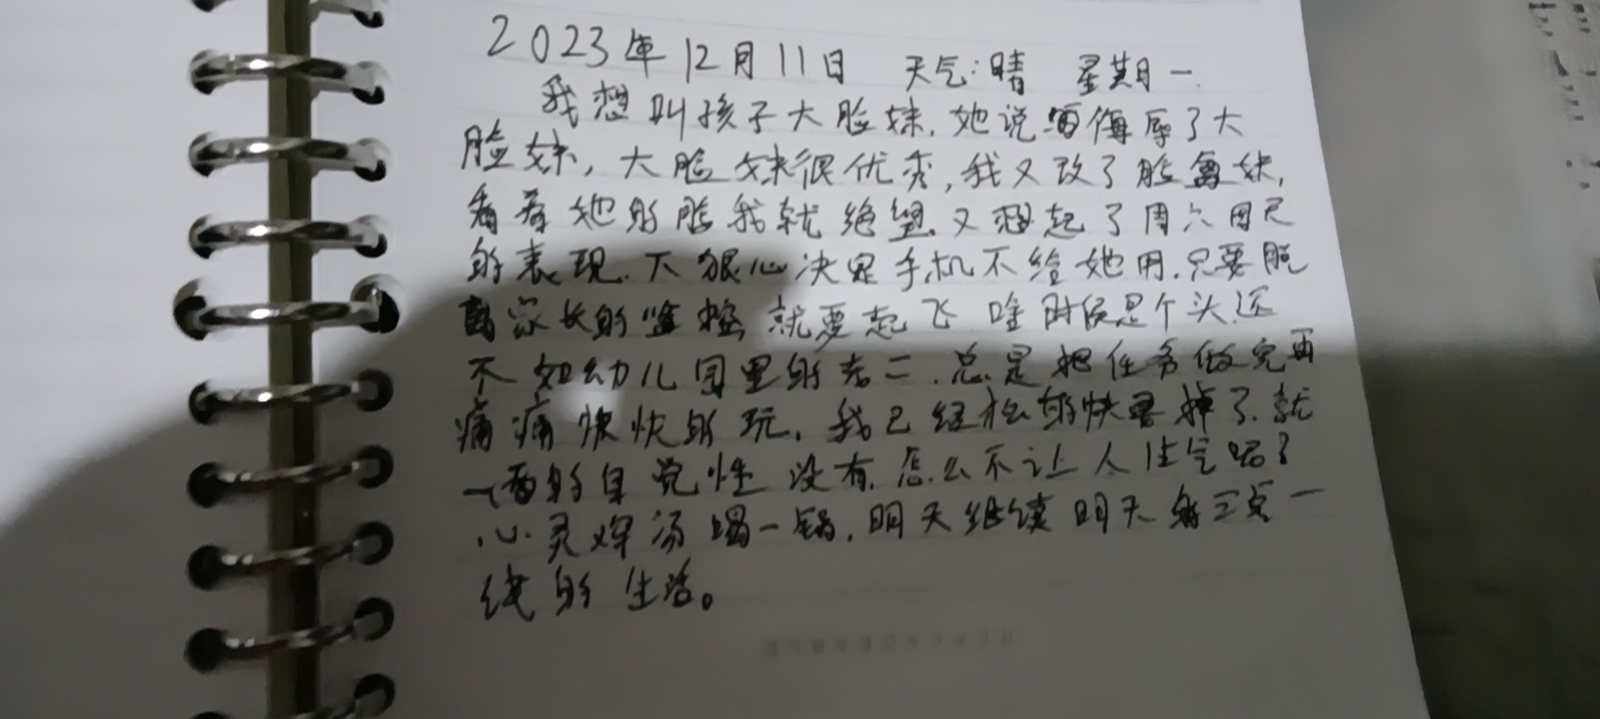 2023年12月11日 天气:晴 星期一.
我想叫孩子大脸妹,她说侮辱了大
脸妹,大脸妹很优秀,我又改了脸妹,
看着她的脸我就绝望.又想起了周六周日
的表现.下狠心决定手机不给她用.只要脱
离家长的监控,就要起飞 啥时候是个头,还
不如幼儿园里的老二.总是把任务做完再
痛痛快快的玩,我已经松的快掉了.就
的自觉性没有.怎么不让人生气呢?
心灵鸡汤喝一锅,明天继续明天的三点一
线的生活。